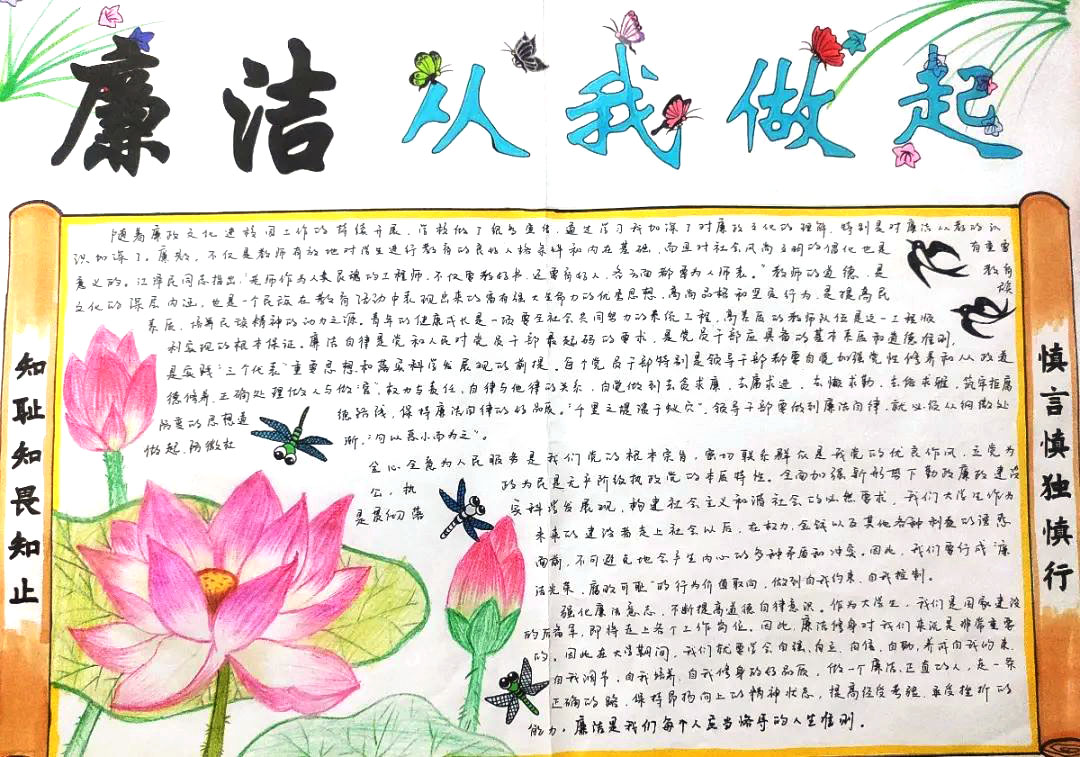 廉洁从我做起
知耻知畏知止
慎言慎独慎行
随着廉政文化进校园工作的持续开展，学校做了很多宣传，通过学习我加深了对廉政文化的理解，特别是对廉洁从教的认
识加深了。廉教，不仅是教师有效地对学生进行教育的良好人格条件和内在基础，而且对社会风尚文明的倡化也是有重要
意义的。江泽民同志指出：“老师作为人类灵魂的工程师，不仅要教好书，还要育好人，各方面都要为人师表。”教师的道德，是教育
文化的深层内涵，也是一个民族在教育活动中表现出来的富有强大生命力的优秀思想，高尚品格和坚定行为，是提高民族
素质，培养民族精神的动力之源。青年的健康成长是一项要全社会共同努力的系统工程，高素质的教师队伍是这一工程顺
利实现的根本保证。廉洁自律是党和人民对党员干部最起码的要求，是党员干部应具备的基本素质和道德准则，
是实践“三个代表”重要思想和落实科学发展观的前提。每个党员干部特别是领导干部都要自觉加强党性修养和从政道
德修养，正确处理做人与做“官”，权力与责任，自律与他律的关系，自觉做到去贪求廉，去庸求进，去懒求勤，去俗求雅，筑牢拒腐
防变的思想道德防线，保持廉洁自律的好品质。“千里之堤溃于蚁穴”，领导干部要做到廉洁自律，就必须从细微处
做起，防微杜渐，“勿以恶小而为之”。
全心全意为人民服务是我们党的根本宗旨，密切联系群众是我党的优良作风，立党为
公，执政为民是无产阶级执政党的本质特性。全面加强新形势下勤政廉政建设
是贯彻落实科学发展观，构建社会主义和谐社会的必然要求，我们大学生作为
未来的建设者走上社会以后，在权力，金钱以及其他各种利益的诱惑
面前，不可避免地会产生内心的多种矛盾和冲突。因此，我们要形成“廉
洁光荣，腐败可耻”的行为价值取向，做到自我约束，自我控制。
强化廉洁意志，不断提高道德自律意识。作为大学生，我们是国家建设
的后备军，即将走上各个工作岗位。因此，廉洁修身对我们来说是非常重要
的。因此在大学期间，我们就要学会自强，自立，自信，自勤，养成自我约束，
自我调节，自我培养，自我修身的好品质，做一个廉洁，正直的人，走一条
正确的路，保持昂扬向上的精神状态，提高经受考验，承受挫折的
能力。廉洁是我们每个人应当恪守的人生准则。